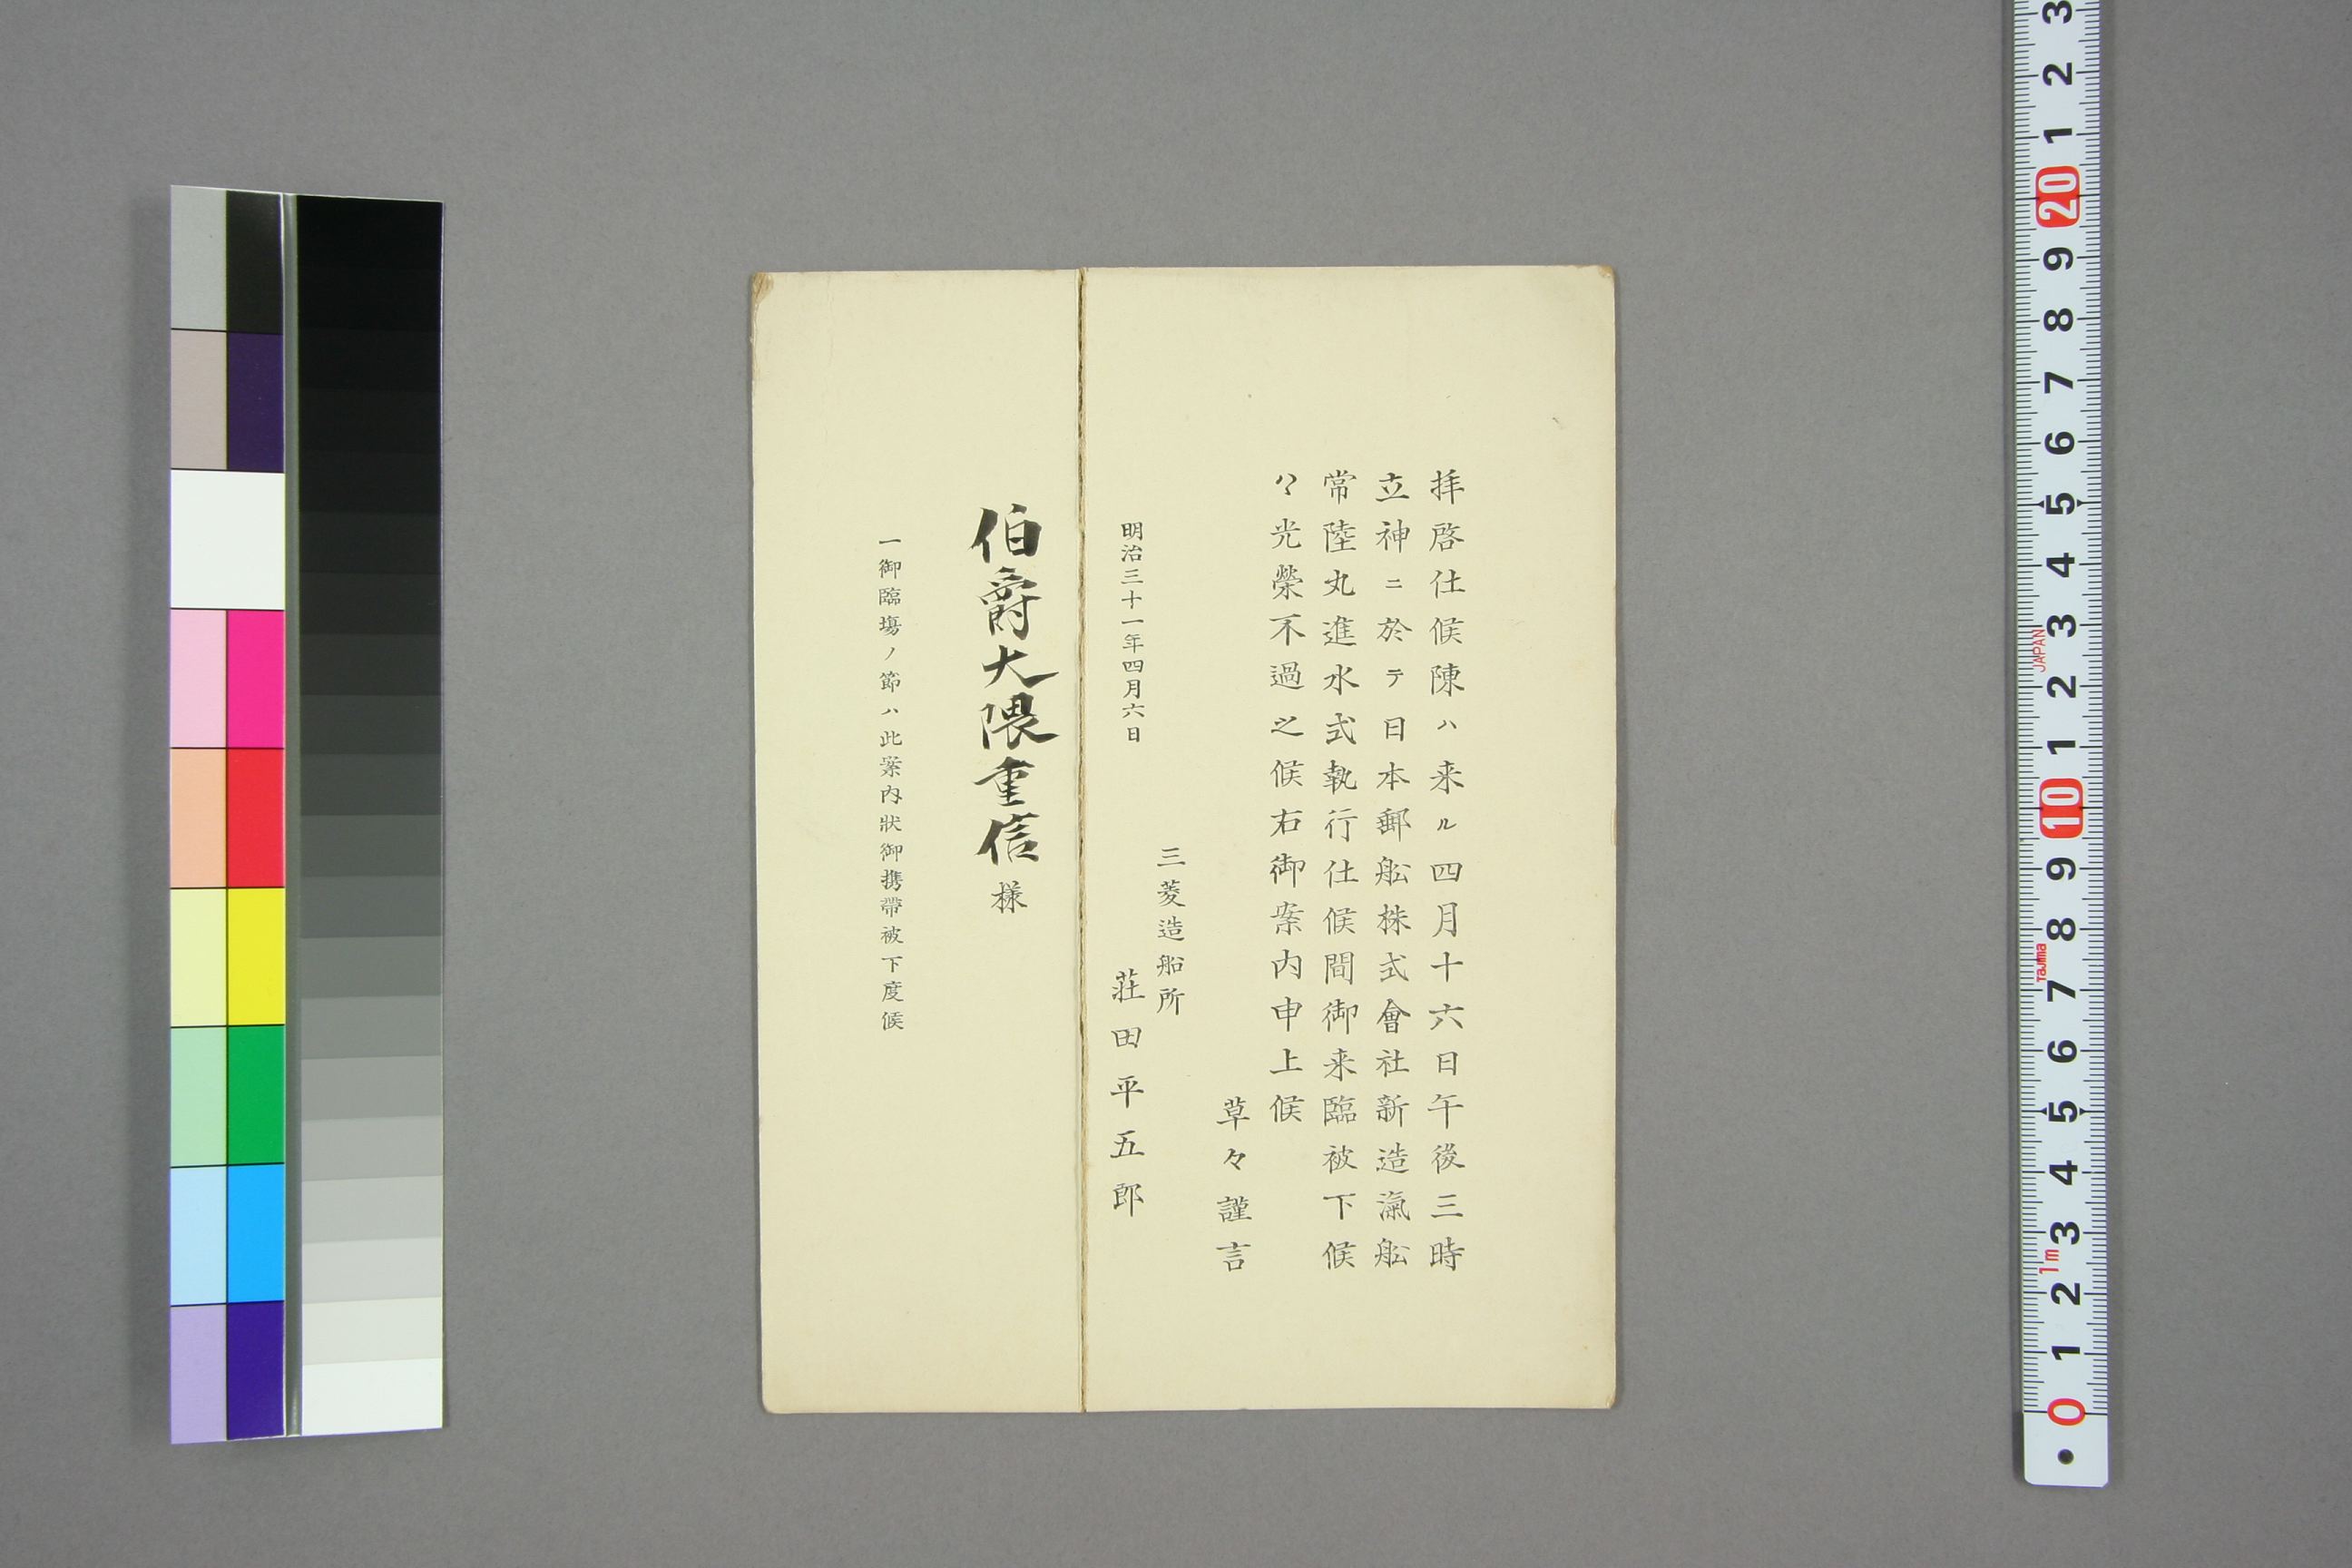 拝啓仕候陳ハ来ル四月十六日午後三時
立神ニ於テ日本郵舩株式會社新造滊舩
常陸丸進水式執行仕候間御来臨被下候
ハヽ光榮不過之候右御案内申上候
草々謹言
三菱造船所
荘田平五郎
明治三十一年四月六日
伯爵大隈重信様
一御臨塲ノ節ハ此案内狀御携帶被下度候
3
2
1
20
9
8
7
6
5
4
3
JAPAN
2
1
10
9
8
Tajima
7
6
5
4
3
1m
2
1
0